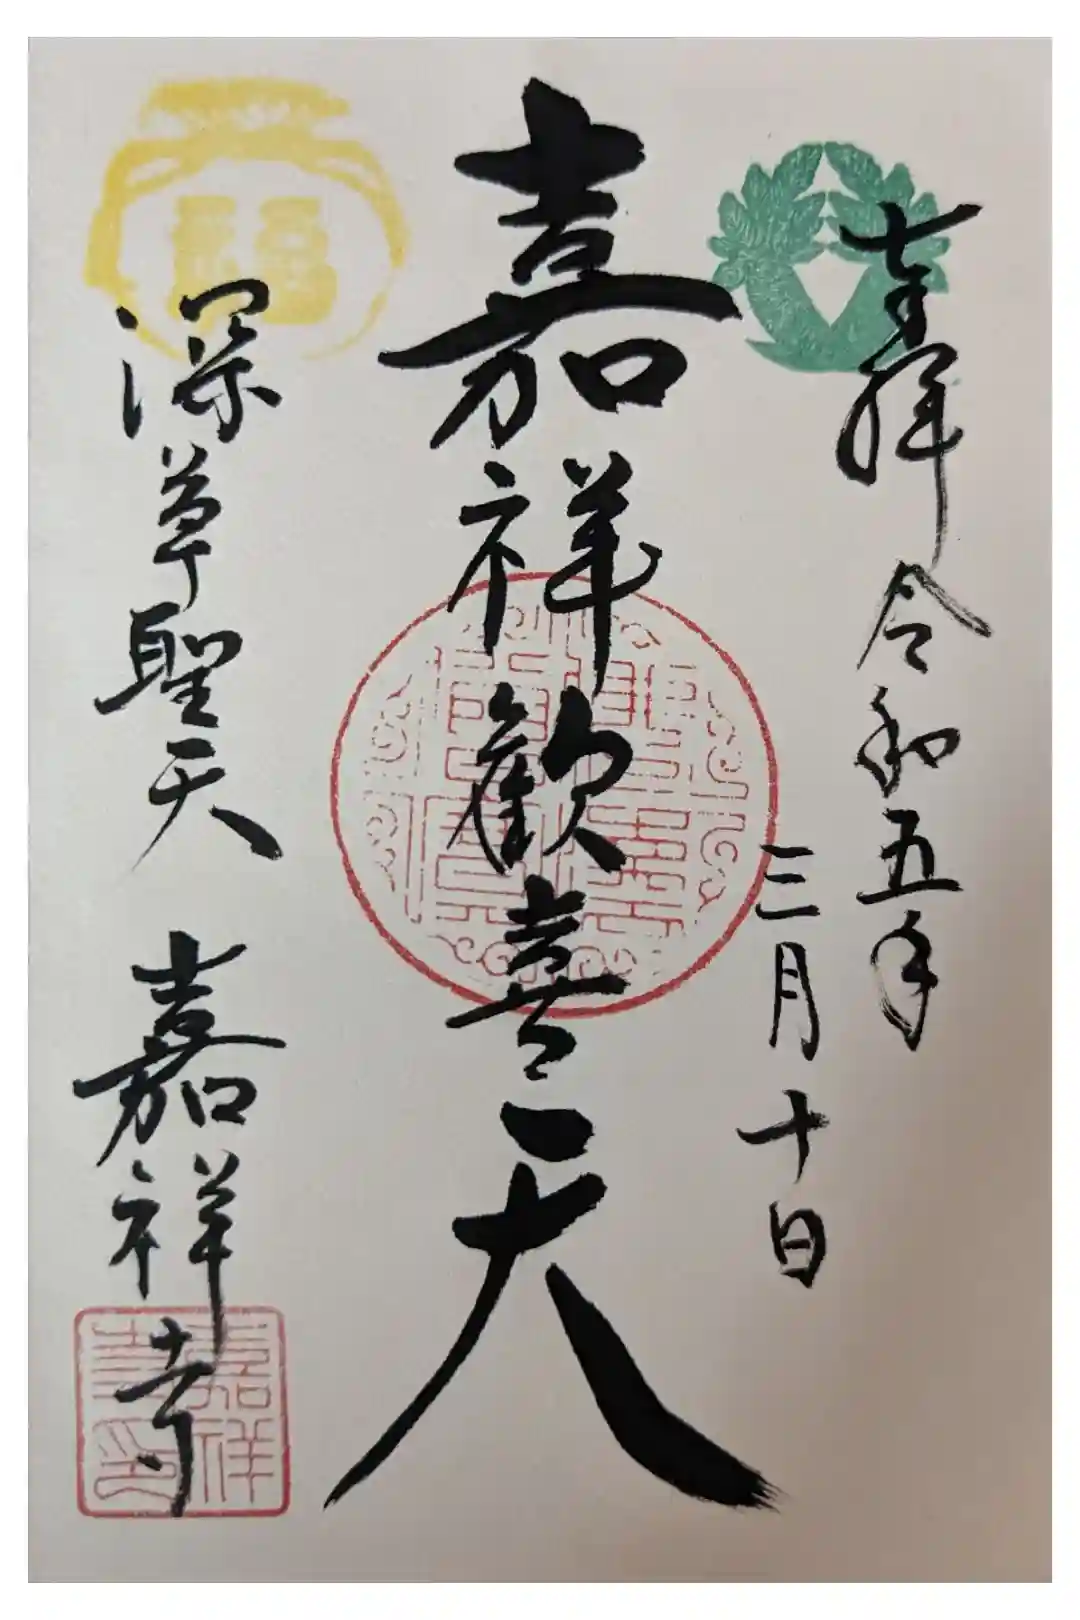 奉拝 令和五年
三月十日
嘉祥歓喜天
深草聖天 嘉祥寺
福
嘉祥
寺印